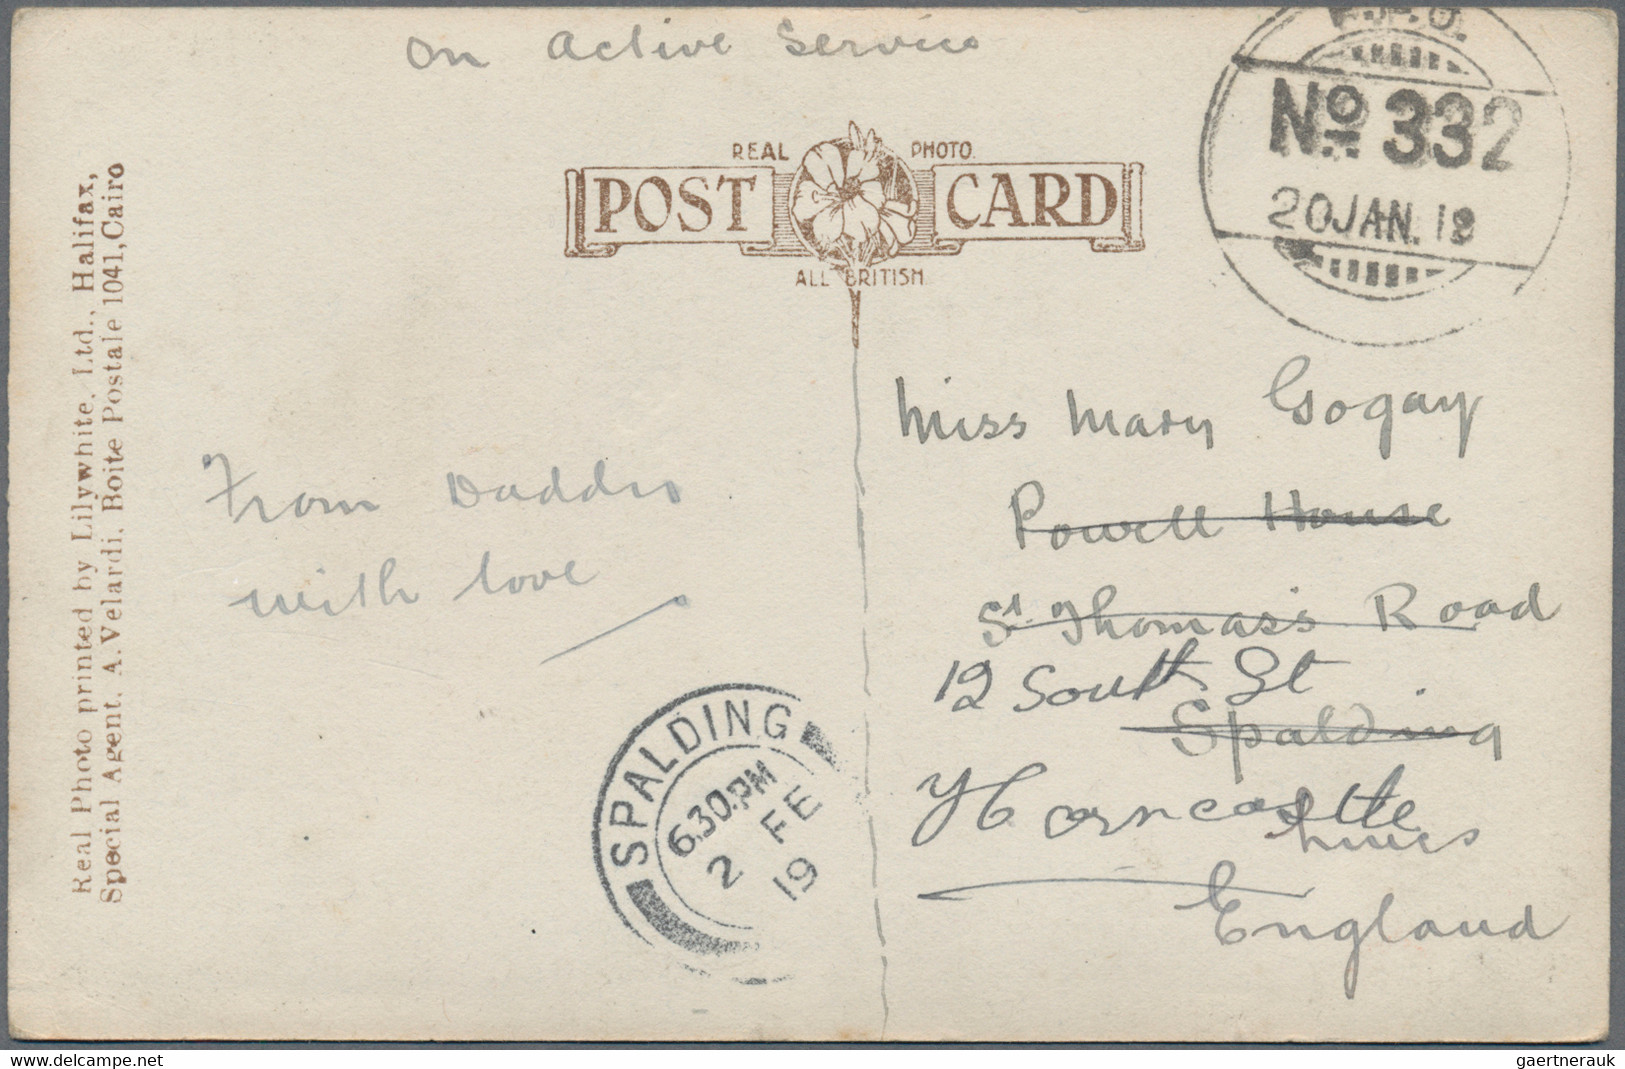 on Active Service
F.P.O.
No 332
20 JAN. 19
REAL PHOTO
POST CARD
ALL BRITISH
Real Photo printed by Lilywhite, Ltd., Halifax,
Special Agent. A. Velardi. Boite Postale 1041, Cairo
From Daddio
with love
Miss Mary Gogay
Powell House
St Thomas's Road
12 South St
Spalding
Horncastle
Lincs
England
SPALDING
6.30.PM
2 FE
19
delcampe.net
gaertnerauk